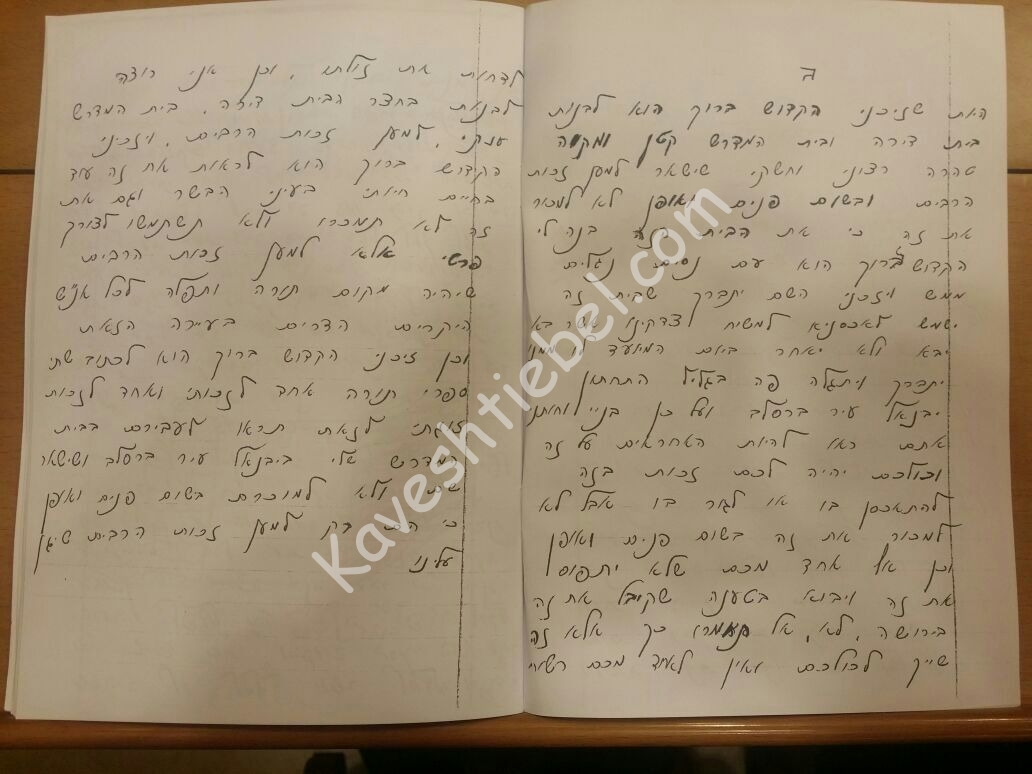 ג
היות שזיכני הקדוש ברוך הוא לבנות
בית דירה ובית המדרש קטן ומקוה
טהרה רצוני וחשקי שישאר למען זכות
הרבים ובשום פנים ואופן לא למכור
את זה כי את הבית הזה בנה לי
הקדוש ברוך הוא עם נסים נגלים
ממש ויזכני השם יתברך שבית זה
ישמש לאכסניא למשיח צדקינו אשר בא
יבא ולא יאחר ביום המיועד לו ממנו
יתברך ויתגלה פה בגליל התחתון
יבנאל עיר ברסלב ועל כן בניי וחותני
אתם ראו להיות האחראים על זה
וכולכם יהיה לכם זכות בזה
להתאכסן בו או לגור בו אבל לא
למכור את זה בשום פנים ואופן
וכן אף אחד מכם שלא יתפוס
את זה ויבוא בטענה שקיבל את זה
בירושה, לא, אל תאמרו כך אלא זה
שייך לכולכם ואין לאחד מכם רשות
לדחות את זולתו, וכן אני רוצה
לבנות בחצר הבית דירה, בית המדרש
ענקי, למען זכות הרבים, ויזכיני
הקדוש ברוך הוא לראות את זה עוד
בחיים חיותי בעיני הבשר וגם את
זה לא תמכרו ולא תשתמשו לצורך
פרטי אלא למען זכות הרבים
שיהיה מקום תורה ותפלה לכל אנ"ש
היקרים הדרים בעיירה הזאת
וכן זיכני הקדוש ברוך הוא לכתוב שתי
ספרי תורה אחד לזכותי ואחד לזכות
זוגתי לזאת תראו להעבירם בבית
המדרש שלי ביבנאל עיר ברסלב ושישאר
שם ולא למוכרם בשום פנים ואופן
כי הם רק למען זכות הרבים שיגן
עלינו
Kaveshtiebel.com